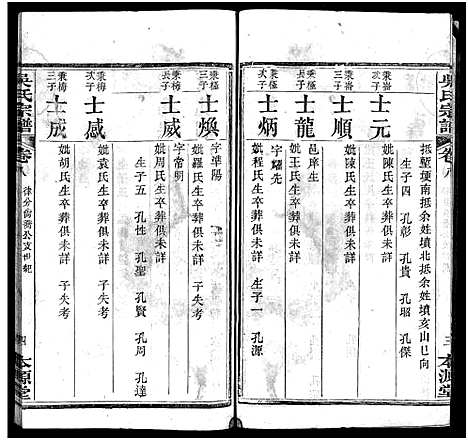 吳氏宗譜
卷八
三
本源堂
抵塹埂南抵余姓墳北抵余姓墳亥山巳向
生子四 孔彰 孔貴 孔昭 孔傑
次子
士元
妣陳氏生卒葬俱未詳
三子
士順
妣陳氏生卒葬俱未詳
邑庠生
次子
士龍
妣王氏生卒葬俱未詳
字耀先
三子
士炳
妣程氏生卒葬俱未詳 生子一 孔源
字準陽
秉極
三子
士煥
妣羅氏生卒葬俱未詳 子失考
字常明
秉梅
長子
士威
妣周氏生卒葬俱未詳
生子五 孔性 孔聖 孔賢 孔周 孔達
秉梅
次子
士感
妣袁氏生卒葬俱未詳 子失考
秉梅
三子
士成
妣胡氏生卒葬俱未詳 子失考
吳氏宗譜
卷八
四
本源堂